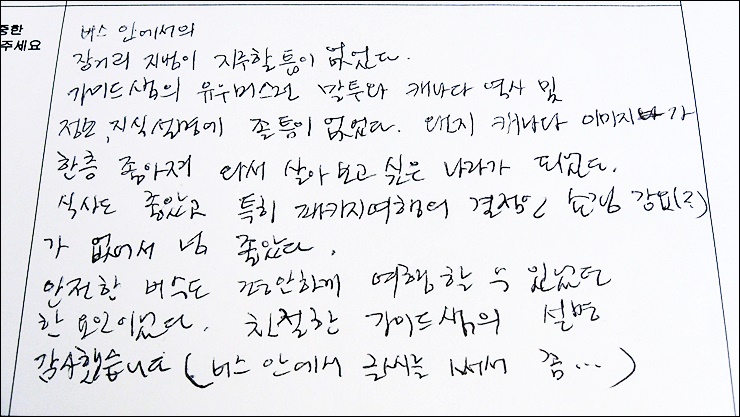 중한
주세요
버스 안에서의
장거리 지범이 지루할 틈이 없었다.
가이드샘의 유우머스런 말투와 캐나다 역사 및
정보, 지식설명에 졸틈이 없었다. 왠지 캐나다 이미지가
한층 좋아져 와서 살아보고 싶은 나라가 되었다.
식사도 좋았고 특히 패키지여행의 결정인 손님 강요(?)
가 없어서 넘 좋았다.
안전한 버스도 편안하게 여행할 수 있었던
한 요인이었다. 친절한 가이드샘의 설명
감사했습니다 (버스 안에서 글씨를 써서 꼼...)